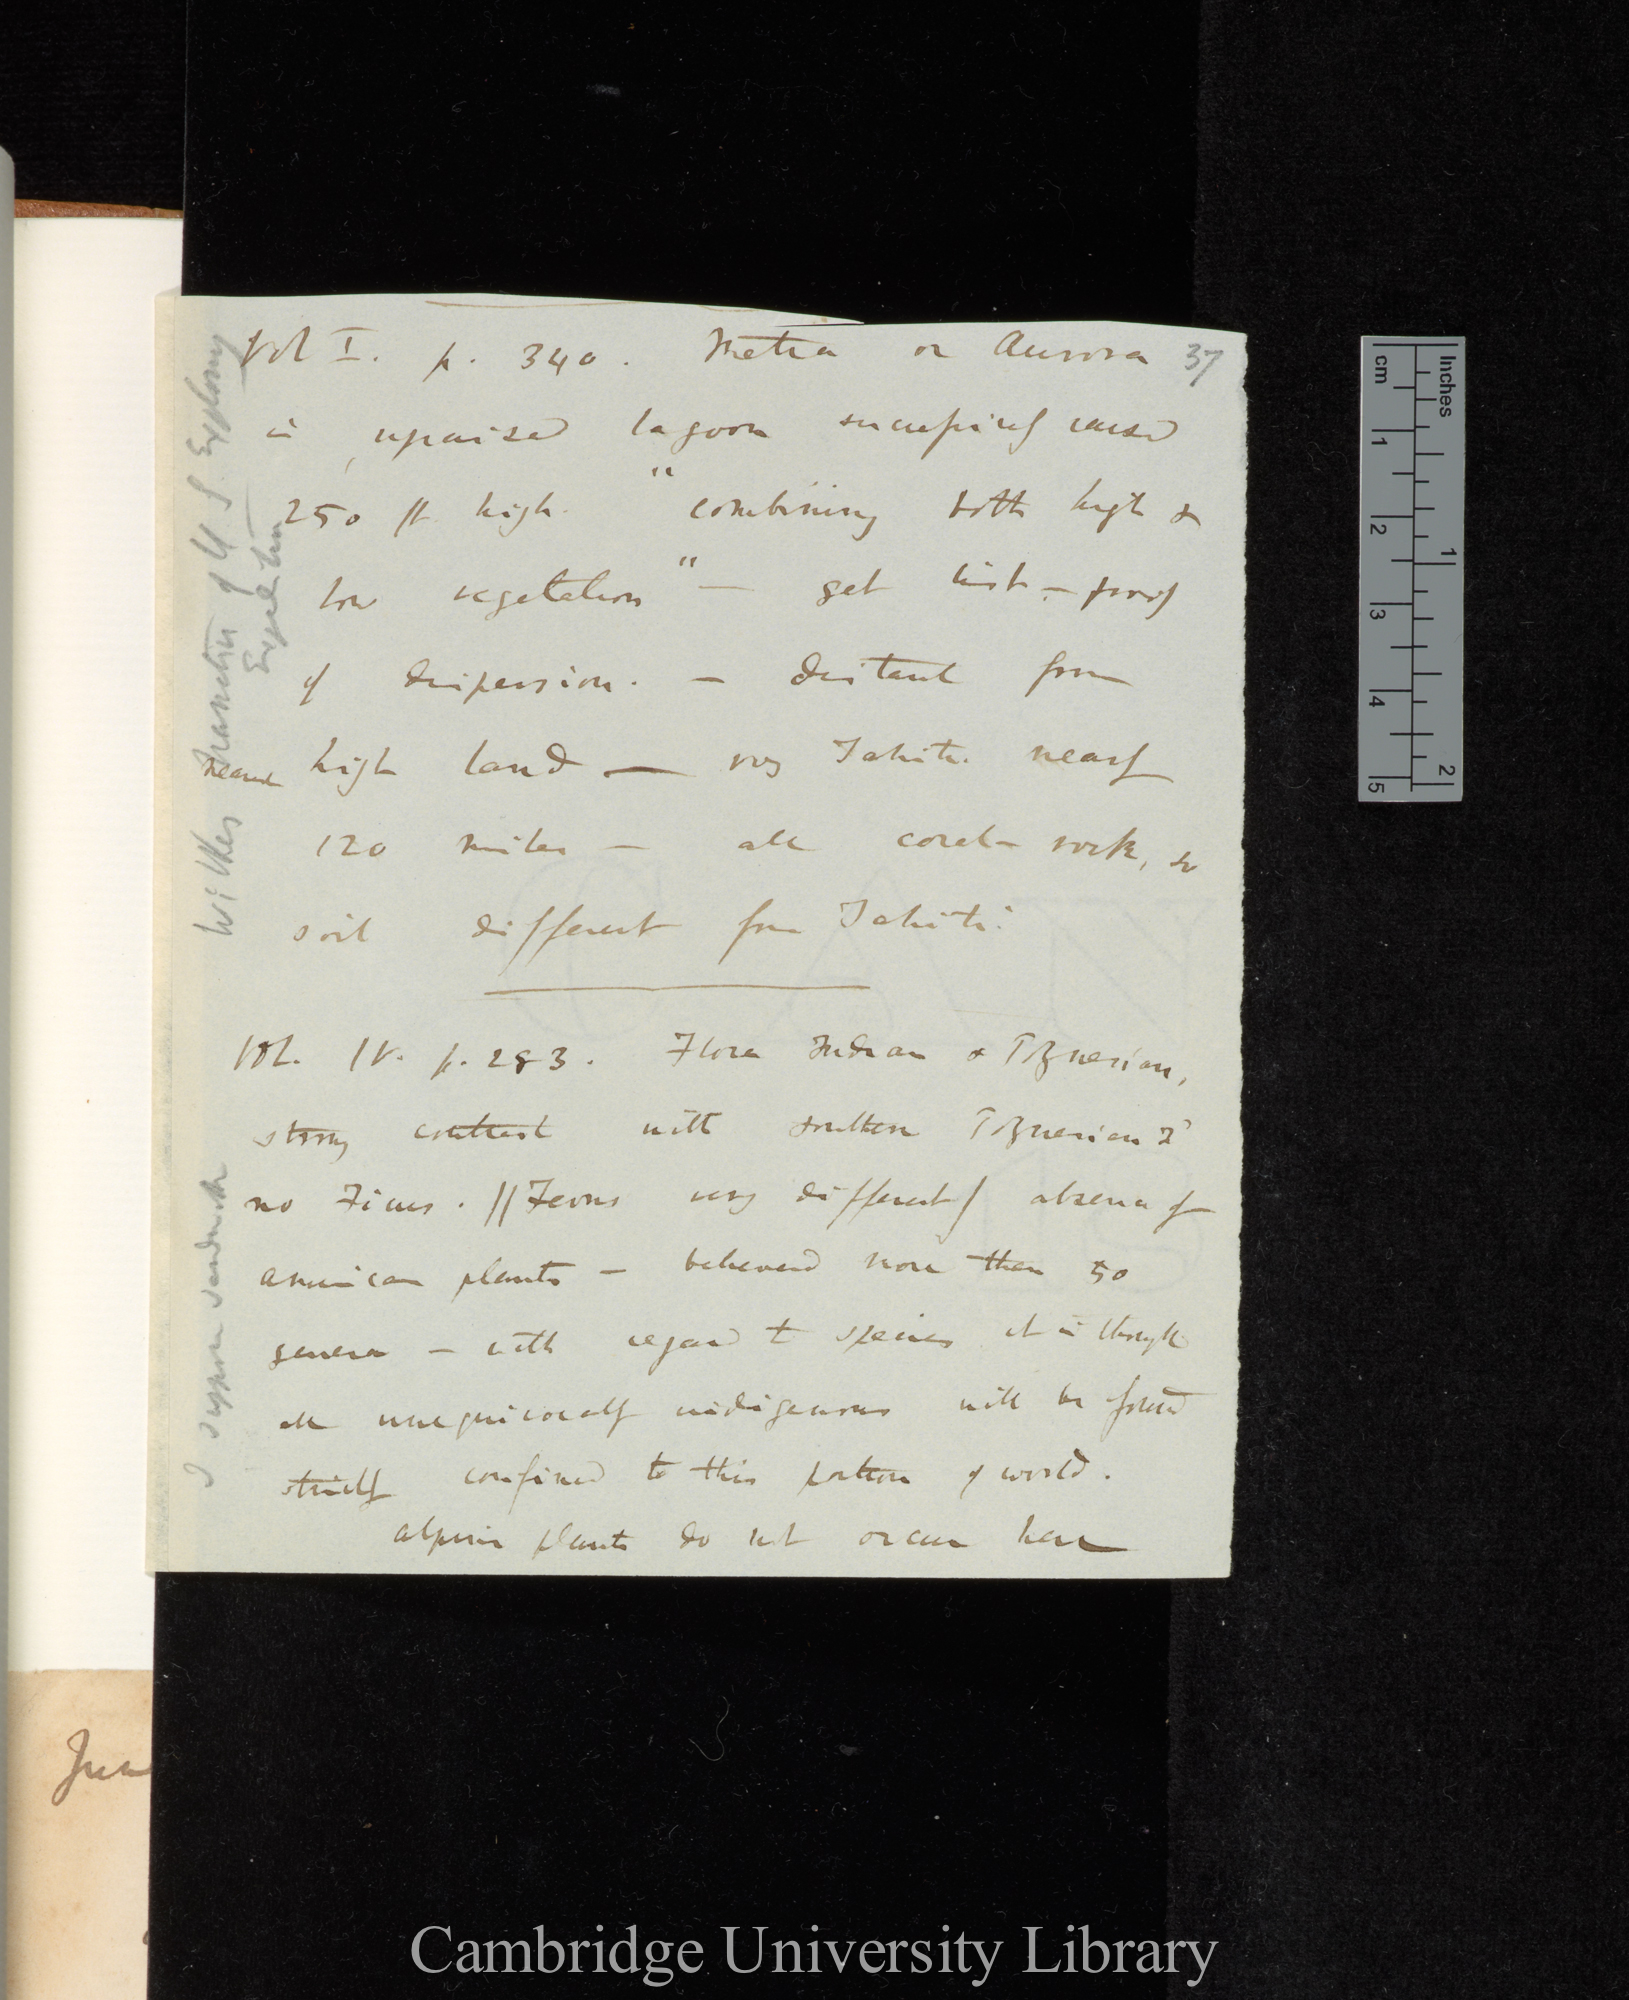 Vol I. p. 340. Metia or Aurora 37
is upraised lagoon successively raised
250 ft high. "combining both high &
low vegetation" — get list — proof
of dispersion. — distant from
nearest high land — viz Tahiti nearly
120 miles — all coral-rock, so
soil different from Tahiti.
Vol. IV. p. 283. Flora Indian & Polynesian,
strong contrast with southern Polynesian Isd
no Ficus. // Ferns very different/ absence of
American plants — believed more than 50
genera — with regard to species it is thought
all unequivocally indigenous will be found
strictly confined to this portion of world.
alpine plants do not occur here
Wilkes Narrative of U S. Exploring
Expedition
I suppose Sandwich
Cambridge University Library
Inches
cm
1
2
3
4
5
1
2